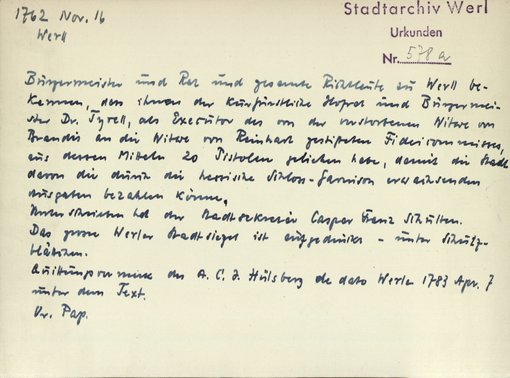 1762 Nov. 16
Werl
Stadtarchiv Werl
Urkunden
Nr. 578a
Bürgermeister und Rat und gesamte Richtleute zu Werll be-
kennen, dass ihnen der Kurfürstliche Hofrat und Bürgermei-
ster Dr. Tyrell, als Executor des von der verstorbenen Witwe von
Brandis an die Witwe von Reinhart gestifteten Fideicommisses,
aus dessen Mitteln 20 Pistolen geliehen habe, damit die Stadt
davon die durch die hessische Schloss-Garnison erwachsenden
Ausgaben bezahlen könne.
Unterschrieben hat der Stadtsekretär Caspar Franz Schulten.
Das grosse Werler Stadtsiegel ist aufgedrückt - unter Schutz-
blättchen.
Quittungsvermerk des A. C. J. Hülsberg de dato Werle 1783 Apr. 7
unter dem Text.
Or. Pap.